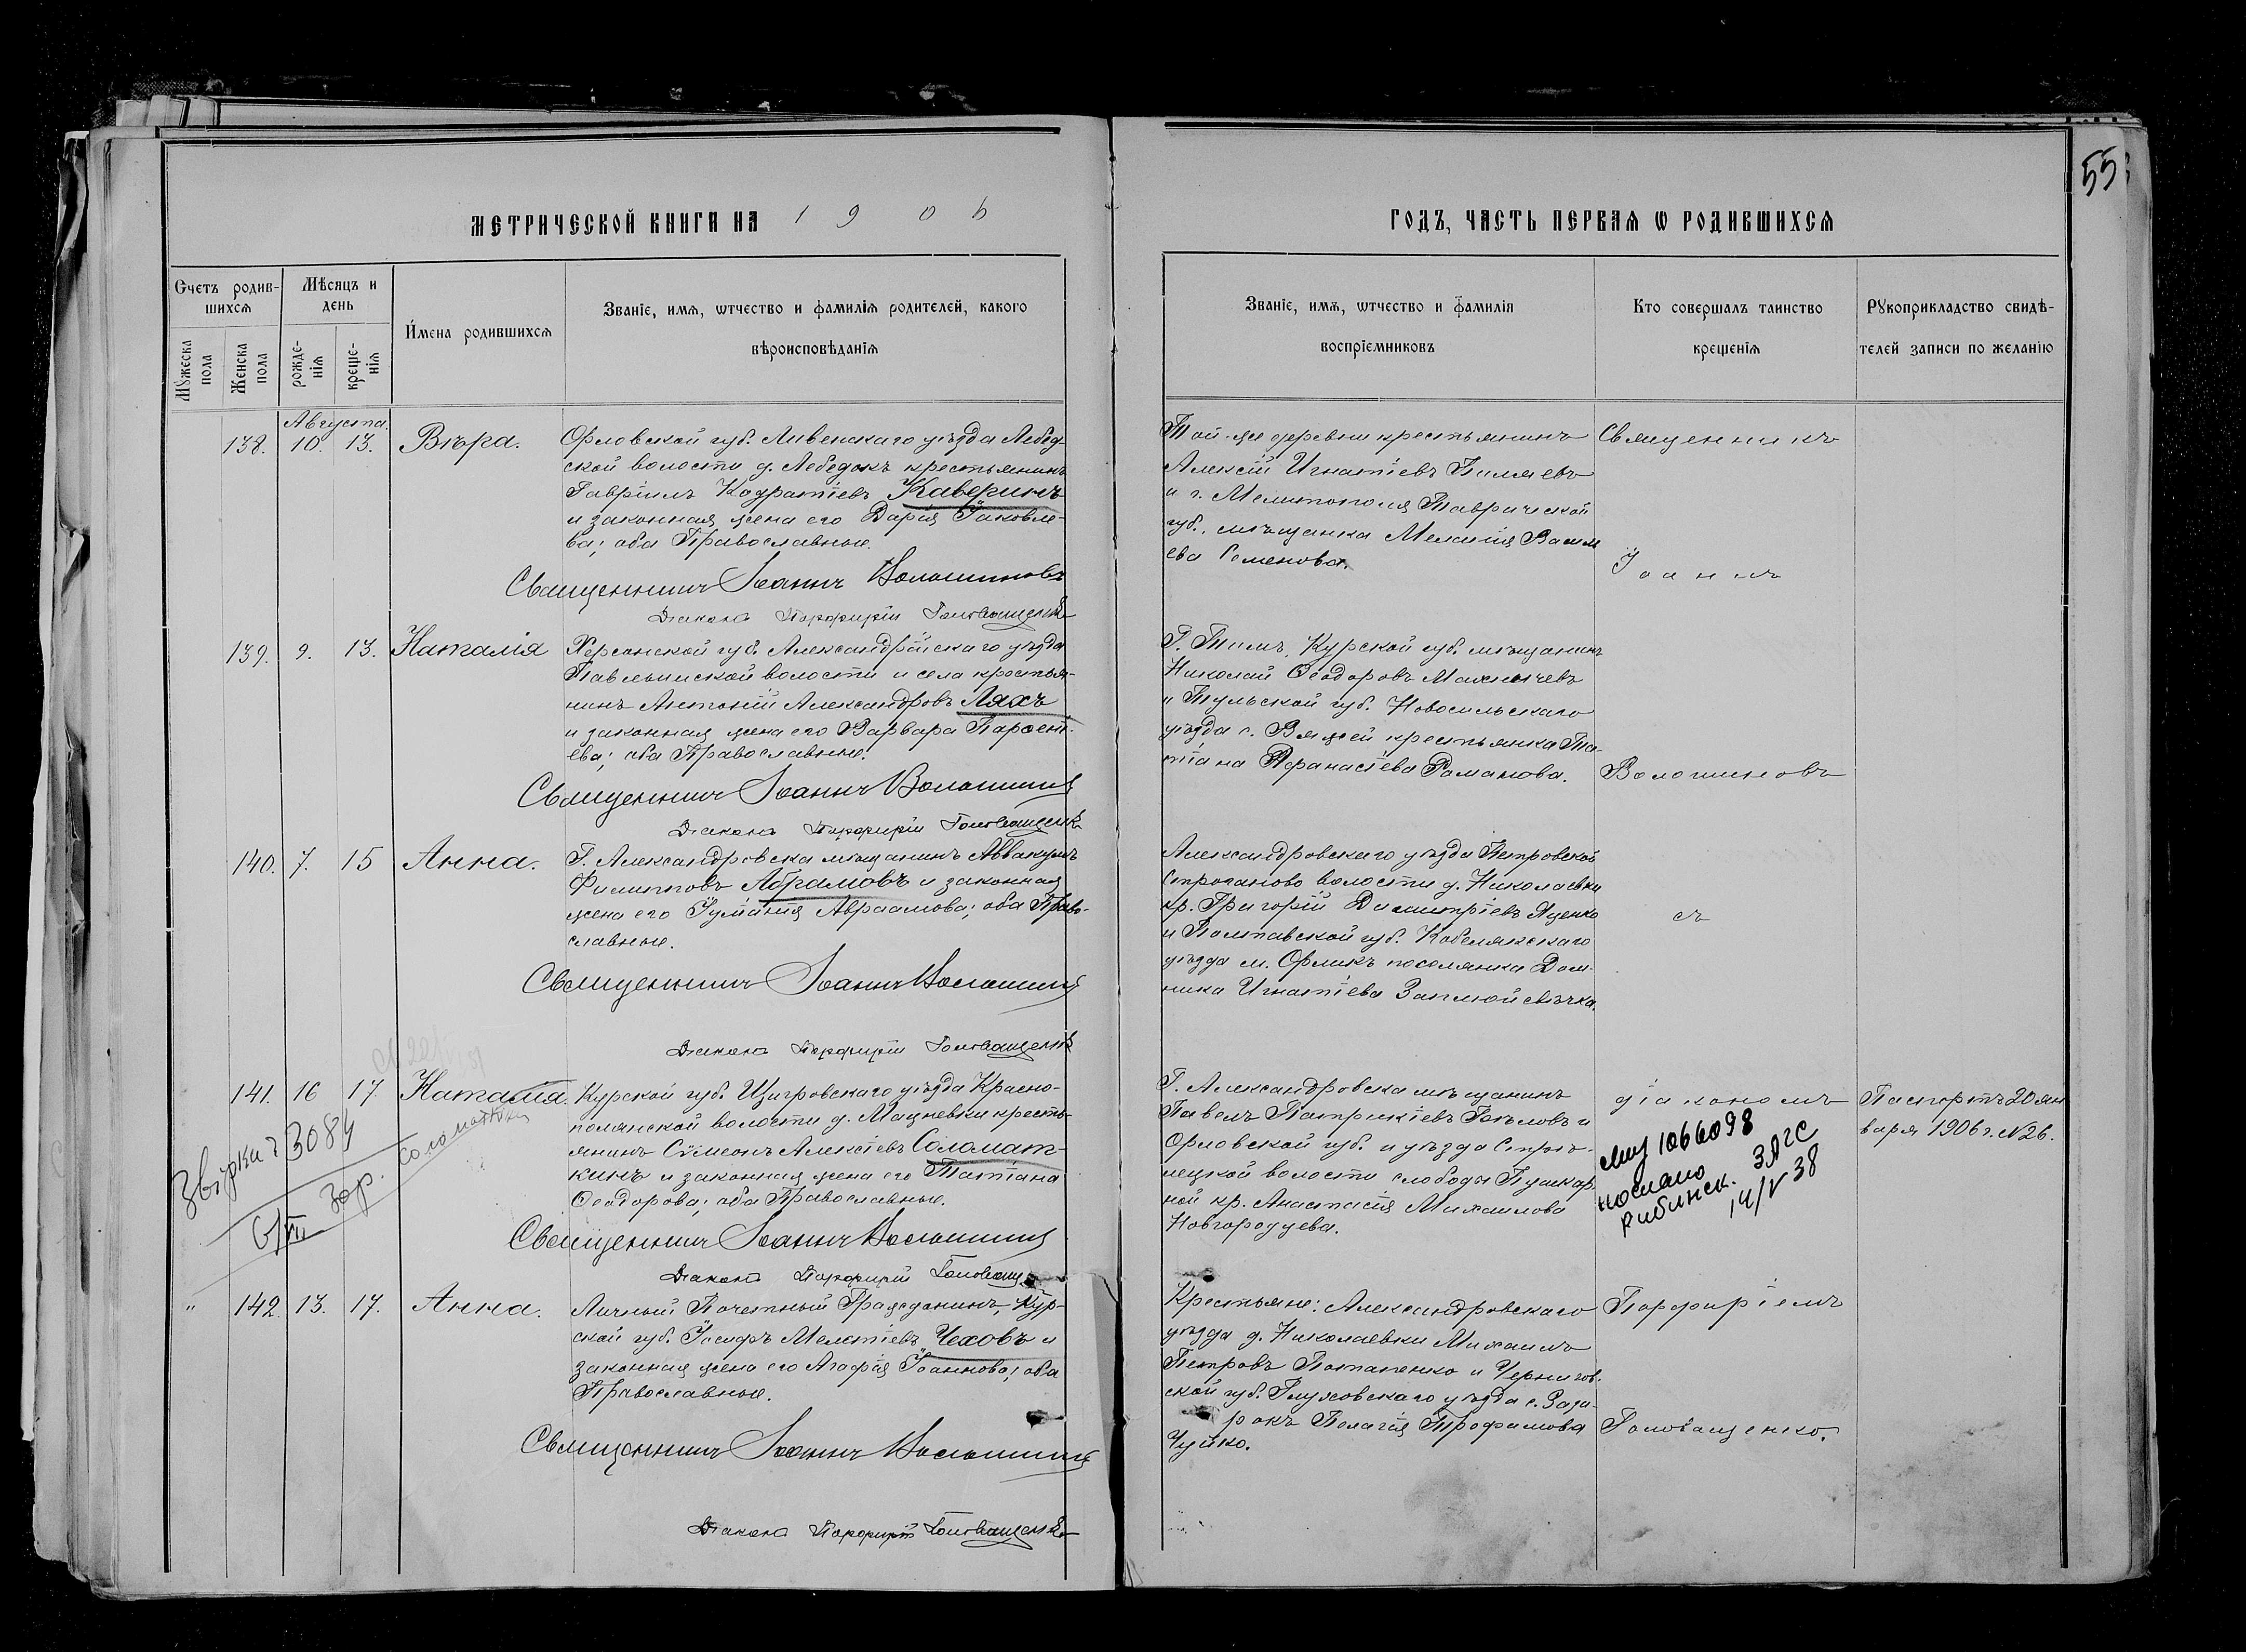 55
МЕТРИЧЕСКОЙ КНИГИ НА 1906
ГОДЪ, ЧАСТЬ ПЕРВАѦ Ѡ РОДИВШИХСѦ
Счетъ родив-
шихсѧ
Мꙋжеска
пола
Женска
пола
Мѣсяцъ и
день
рожде-
нїѧ
креще-
нїѧ
Имена родившихсѧ
Званїе, имѧ, ѡтчество и фамилїѧ родителей, какого
вѣроисповѣданїѧ
Званїе, имѧ, ѡтчество и фамилїѧ
воспрїемниковъ
Кто совершалъ таинство
крещенїѧ
Рꙋкоприкладство свидѣ-
телей записи по желанїю
Августа
138. 10. 13. Вѣра.
Орловской губ. Ливенскаго уѣзда Лебед-
ской волости д. Лебедокъ крестьянинъ
Гавріилъ Кодратіевъ Каверинъ
и законная жена его Дарія Іаковле-
ва; оба Православные.
Священникъ Іоаннъ Волошиновъ
Діаконъ Порфирій Головащенко
Той-же деревни крестьянинъ
Алексій Игнатіевъ Пиляевъ
и г. Мелитополя Таврической
губ., мѣщанка Меланія Васил
ева Семенова.
Священникъ
Іоаннъ
139. 9. 13. Наталія
Херсонской губ. Александрійскаго уѣзда
Павлышской волости и села крестья-
нинъ Антоній Александровъ Ляхъ
и законная жена его Варвара Парѳент-
ева; оба Православные.
Священникъ Іоаннъ Волошиновъ
Діаконъ Порфирій Головащенко
Г. Тимъ, Курской губ. мѣщанинъ
Николай Ѳеодоровъ
и Тульской губ. Новосильскаго
уѣзда с. Вяжей крестьянка Та-
тіана Аѳанасіева Романова.
Волошиновъ
140. 7. 15 Анна.
Г. Александровска мѣщанинъ Аввакумъ
Филипповъ Абрамовъ и законная
жена его Іуліанія Авраамова; оба Право-
славные.
Священникъ Іоаннъ Волошиновъ
Діаконъ Порфирій Головащенко
Александровскаго уѣзда Петровской
волости д. Николаевки
кр. Григорій Димитріевъ Яценко
и Полтавской губ. Кобелякскаго
уѣзда м. Орликъ поселянка Дом-
ника Игнатіева Заплюйсвѣчка.
съ
141. 16 17. Наталія.
Курской губ. Щигровскаго уѣзда Красно-
полянской волости д. Мацневки кресть-
янинъ Сѵмеонъ Алексіевъ Соломат-
кинъ и законная жена его Татіана
Ѳеодорова; оба Православные.
Священникъ Іоаннъ Волошиновъ
Діаконъ Порфирій Головащенко
Г. Александровска мѣщанинъ
Павелъ Патрикіевъ и
Орловской губ. и уѣзда Стрѣ-
лецкой волости слободы Пушкар-
ной кр. Анастасія Михаилова
Новгородцева.
діакономъ
1066098
послано ЗАГС
рибинск. 14/V 38
Паспортъ 20 ян
варя 1906 г. №26.
Звірка 3084
Зар. Соломаткин
" 142. 13. 17. Анна.
Личный Почетный Гражданинъ, Кур-
ской губ. Іосифъ Мелетіевъ Чеховъ и
законная жена его Агафія Іоаннова; оба
Православные.
Священникъ Іоаннъ Волошиновъ
Діаконъ Порфирій Головащенко
Крестьяне: Александровскаго
уѣзда д. Николаевки Михаилъ
Петровъ Потапенко и Чернигов-
ской губ. Глуховскаго уѣзда с.
Пелагія Трофимова
Чуйко.
Порфиріемъ
Головащенко.